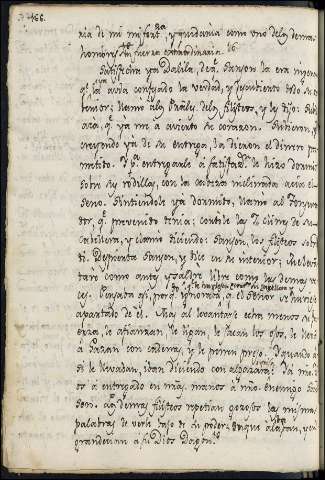 466.
ria de mi mi fort.ª, y quedaria como uno de los demas
hombres sin fuerza extraordinaria. 16
Satisfecha ya Dalila, de q.e Sanson la era ingenuo
q.e la avia confesado la verdad, y
llamo a los Príncipes de los filisteos, y les dijo: Subid
aca, q.e ya me a abierto su corazon.
creyendo ya de su entrega, la dieron el dinero pro
metido. Y p.ª entregarle a satisfac.on le hizo dormir
sobre su rodillas, con la cabeza reclinada acia el
seno. Sintiendole ya dormido, llamo al
dor, q.e prevenido tenia; cortole las 7 clines de su
cabellera, y clamo diciendo: Sanson, los filisteos sobre
ti. Despierta Sanson, y dice en su interior; me levan
tare como antes, y saldre libre como las demas ve
ces. Pensaba asi, porq.e ignoraba, q.e el Señor se havia
apartado de el. Mas al levantarse echa menos su fu
erza, le afianzan, le atan, le sacan los ojos, le llevan
a Gazan con cadenas, y le ponen preso. Y quando a
si le llevaban, iban diciendo con algazara: Ya
os a entregado en nias. manos a nro. enemigo San
son. Los demas filisteos repetian gozosos las mismas
palabras de verle bajo de su poder; y que alaban, y en
grandecian a su Dios Dagon.